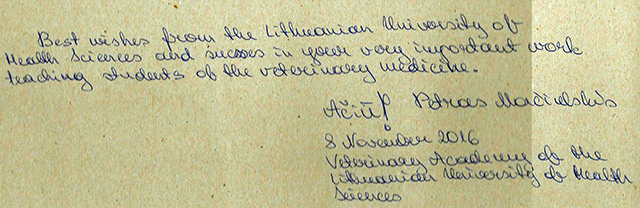 Best wishes from the Lithuanian University of
Health Sciences and success in your very important work
teaching students of the veterinary medicine.
Ačiū! Petras Mačiulskis
8 November 2016
Veterinary Academy of the
Lithuanian University of Health
Sciences